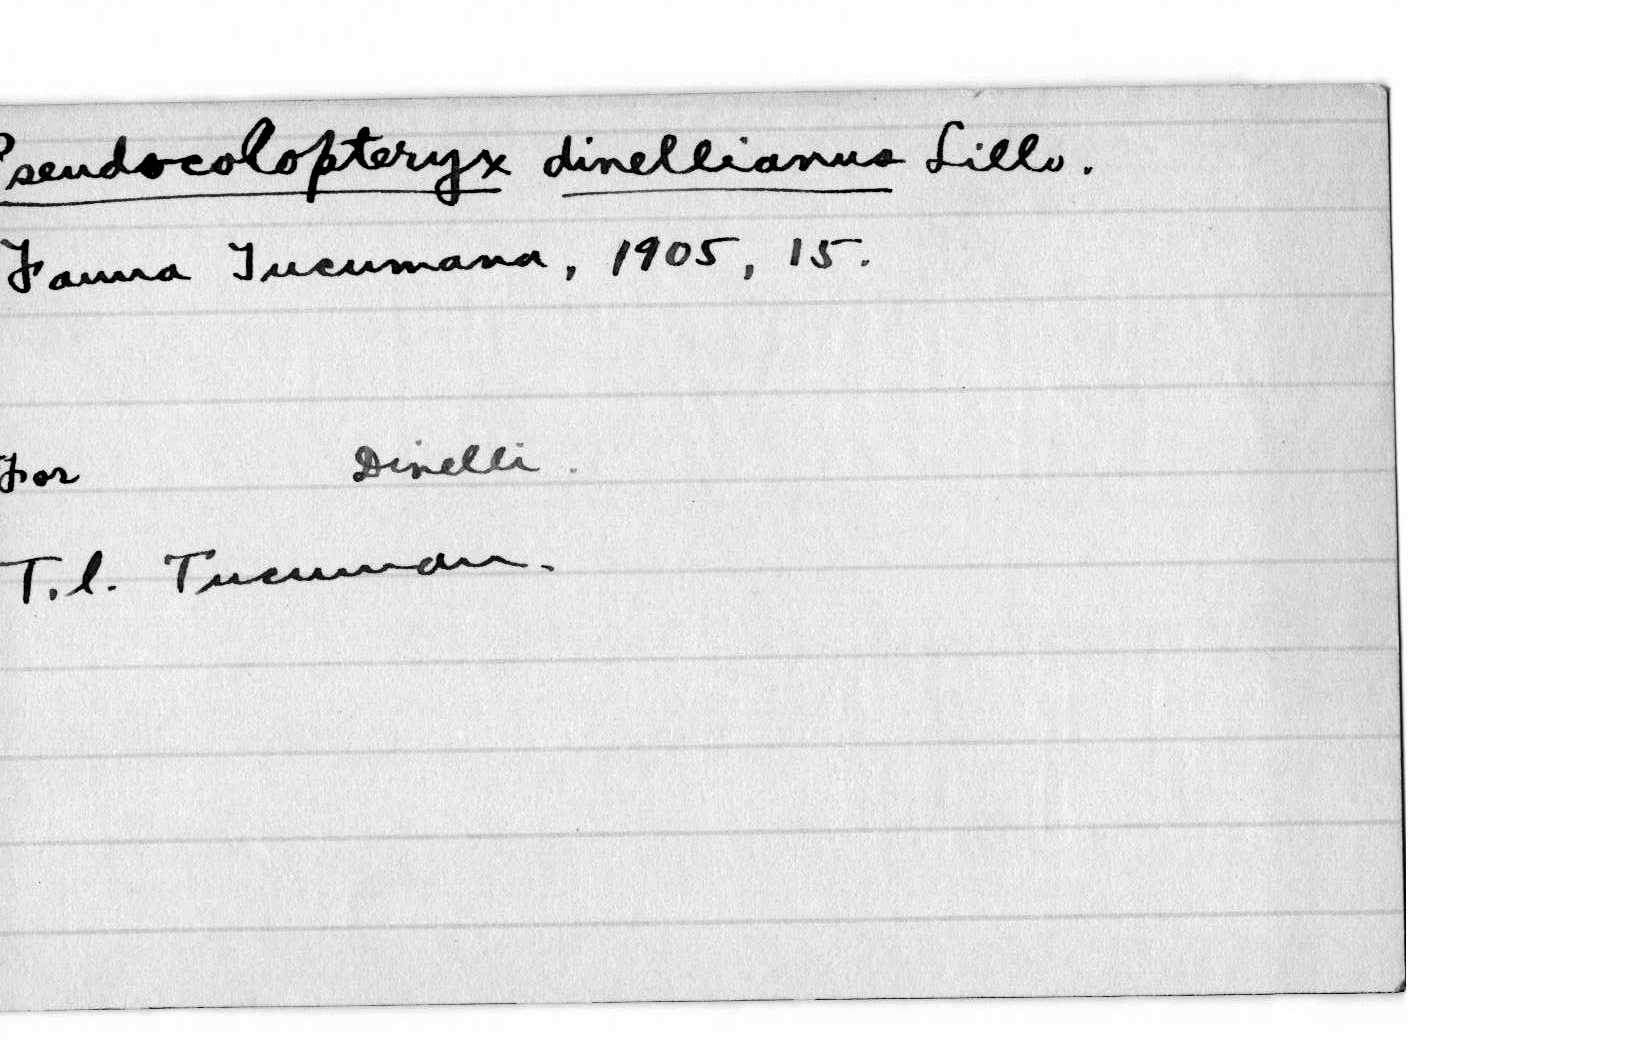 Pseudocolopteryx dinellianus Lillo.
Fauna Tucumana, 1905, 15.
For Dinelli.
T.l. Tucuman.